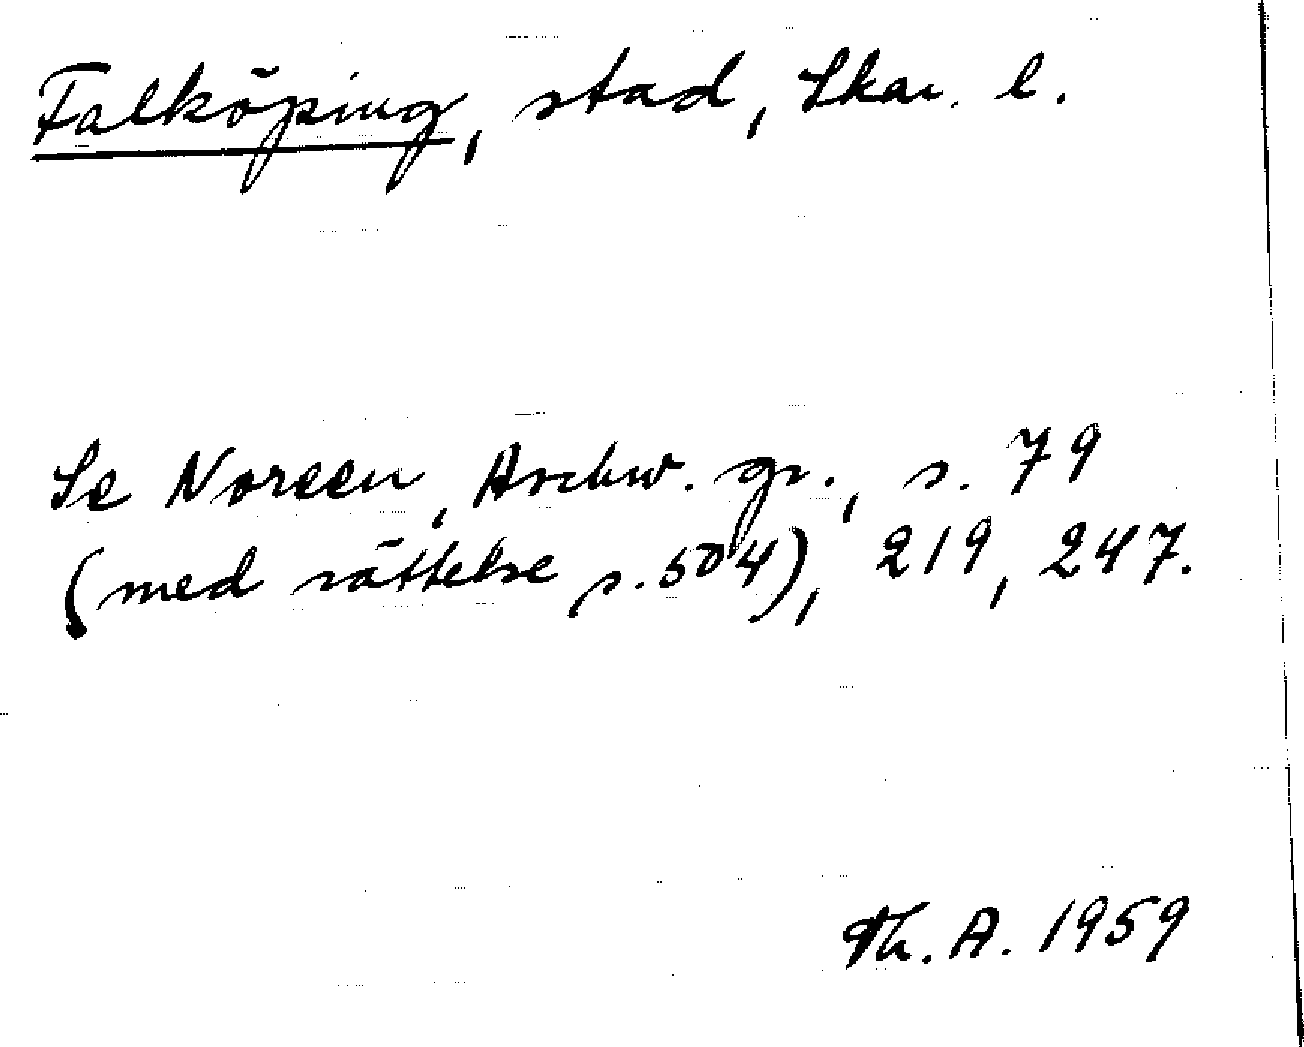 Falköping, stad, Skar. l.
Se Noreen, Aschw. gr., s. 79
(med rättelse s. 504), 219, 247.
Th. A. 1959